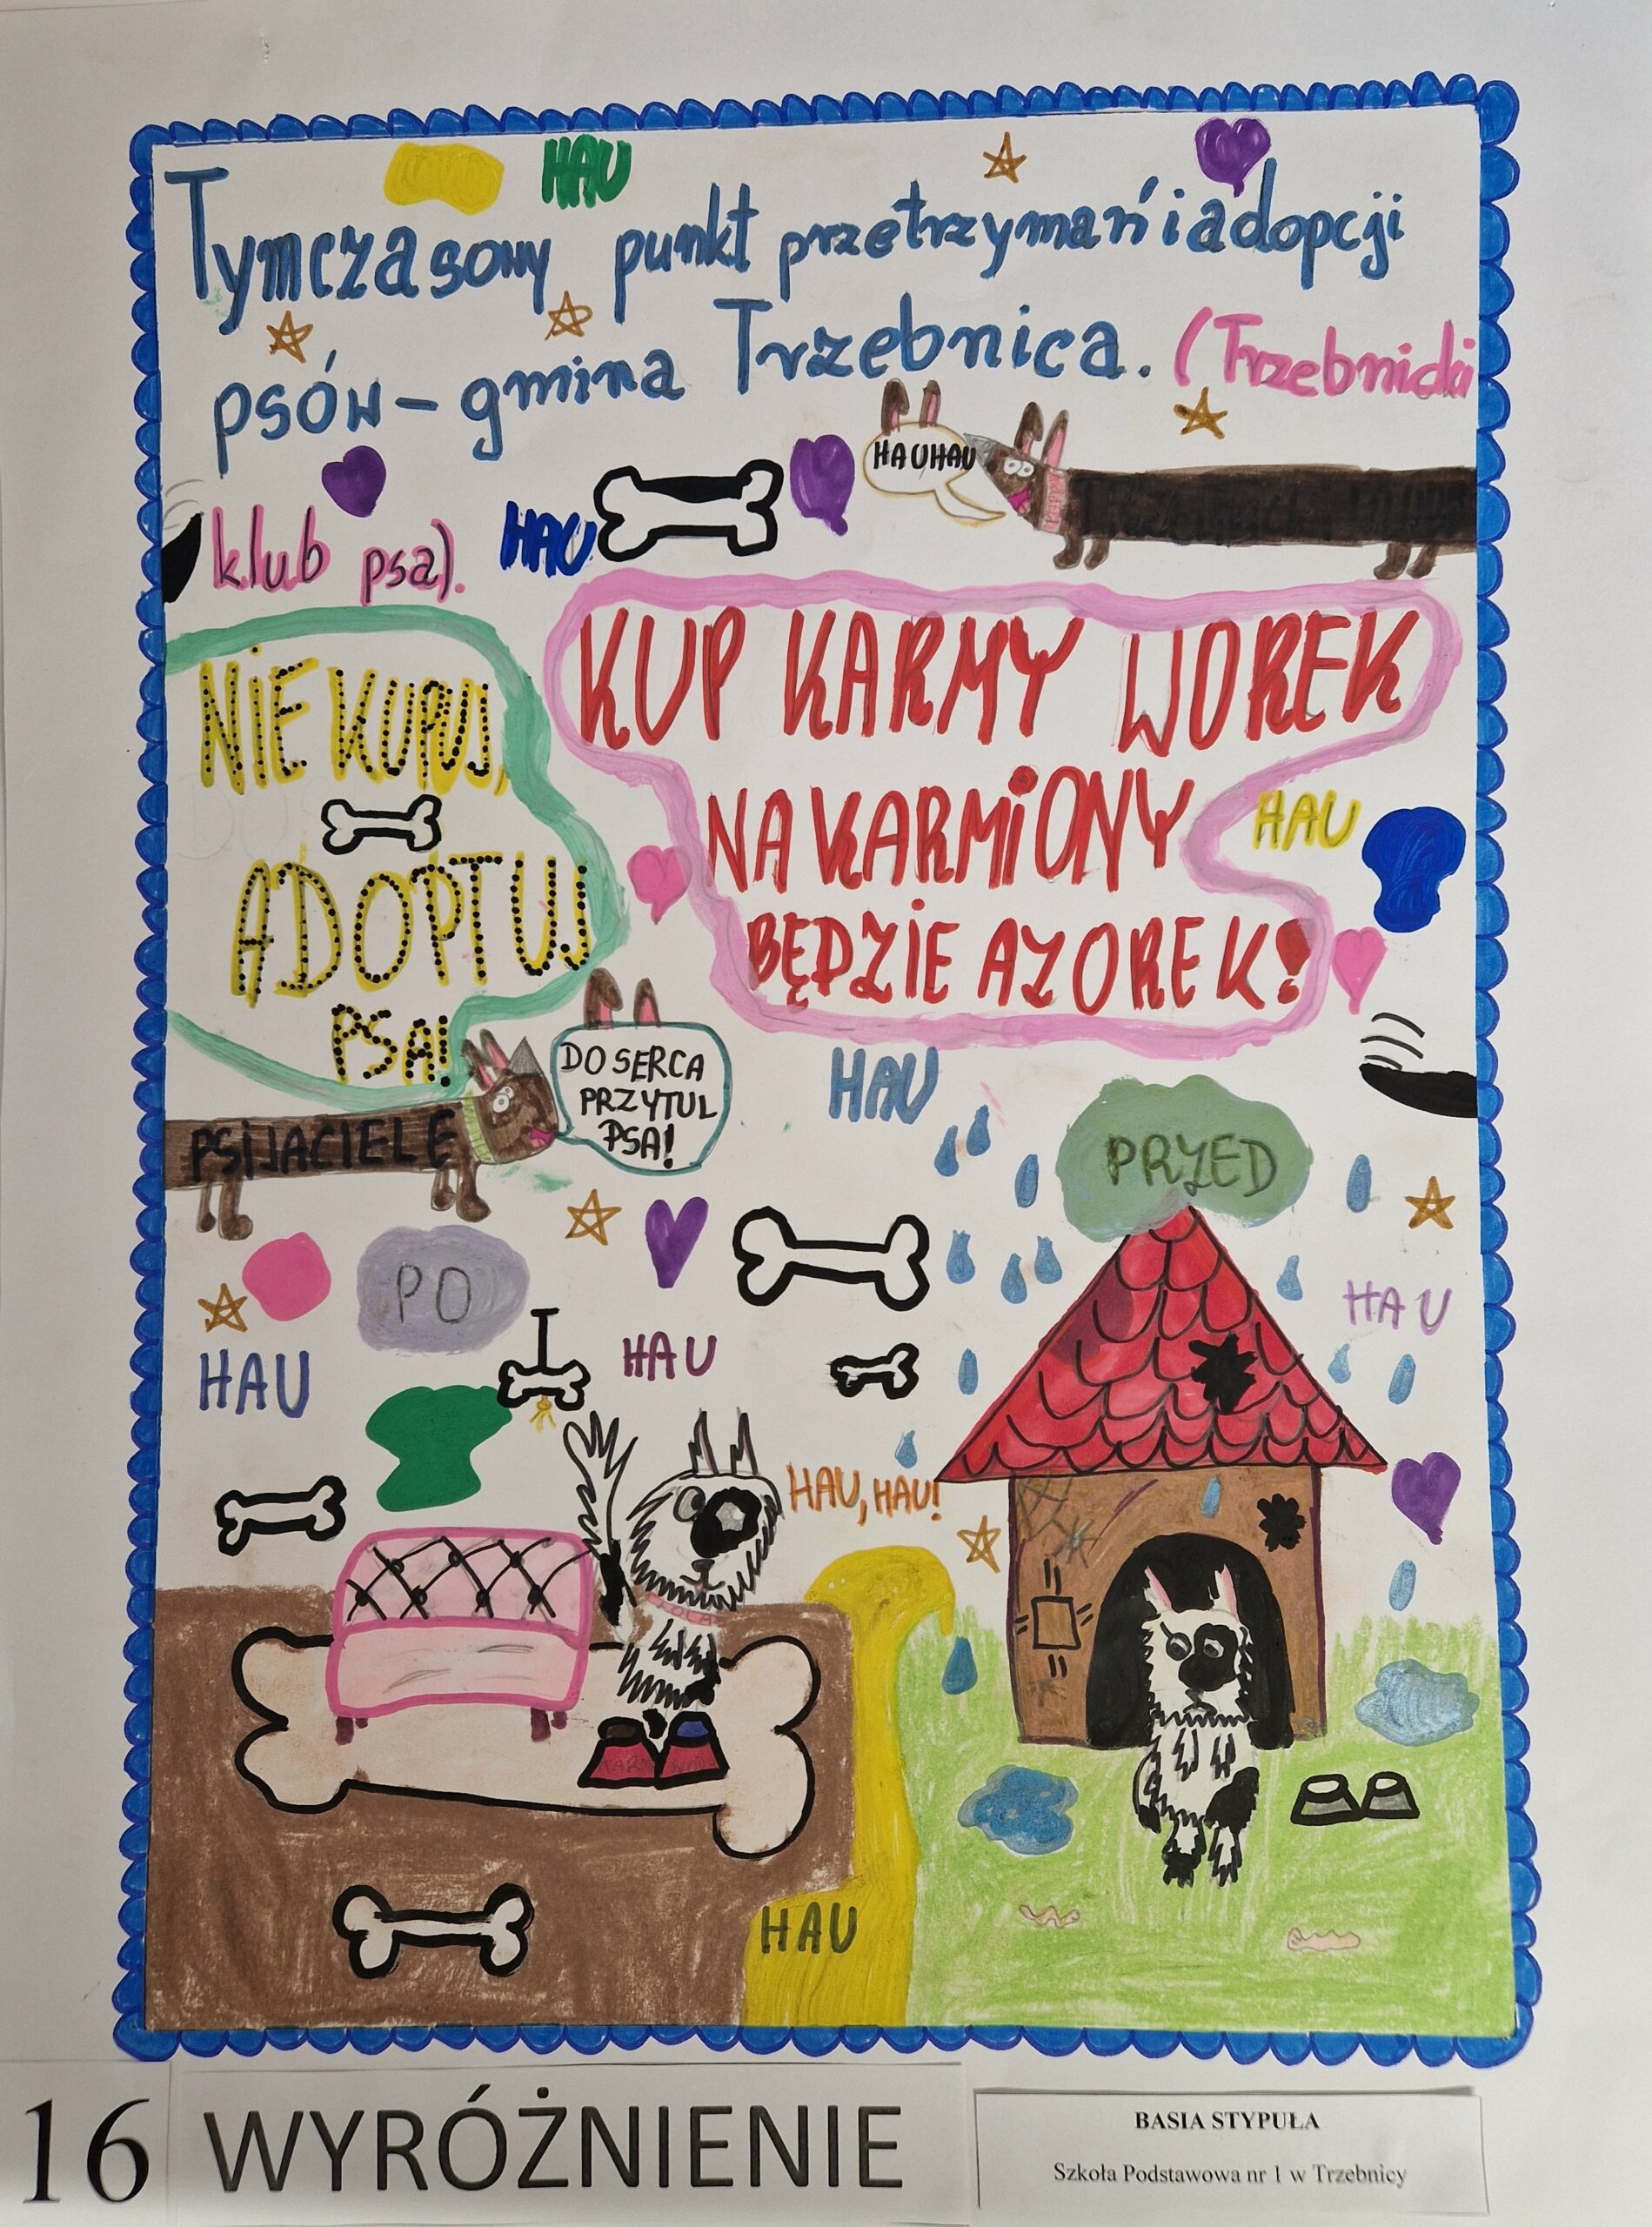 HAU
Tymczasowy punkt przetrzymań i adopcji
psów - gmina Trzebnica. (Trzebnicki
klub psa).
HAU
HAUHAU
NIE KUPUJ,
ADOPTUJ
PSA!
KUP KARMY WOREK
NAKARMIONY
BĘDZIE AZOREK!
HAU
PSIJACIELE
DO SERCA
PRZYTUL
PSA!
HAU
PRZED
PO
HAU
HAU
HAU
HAU, HAU!
HAU
16 WYRÓŻNIENIE
BASIA STYPUŁA
Szkoła Podstawowa nr 1 w Trzebnicy